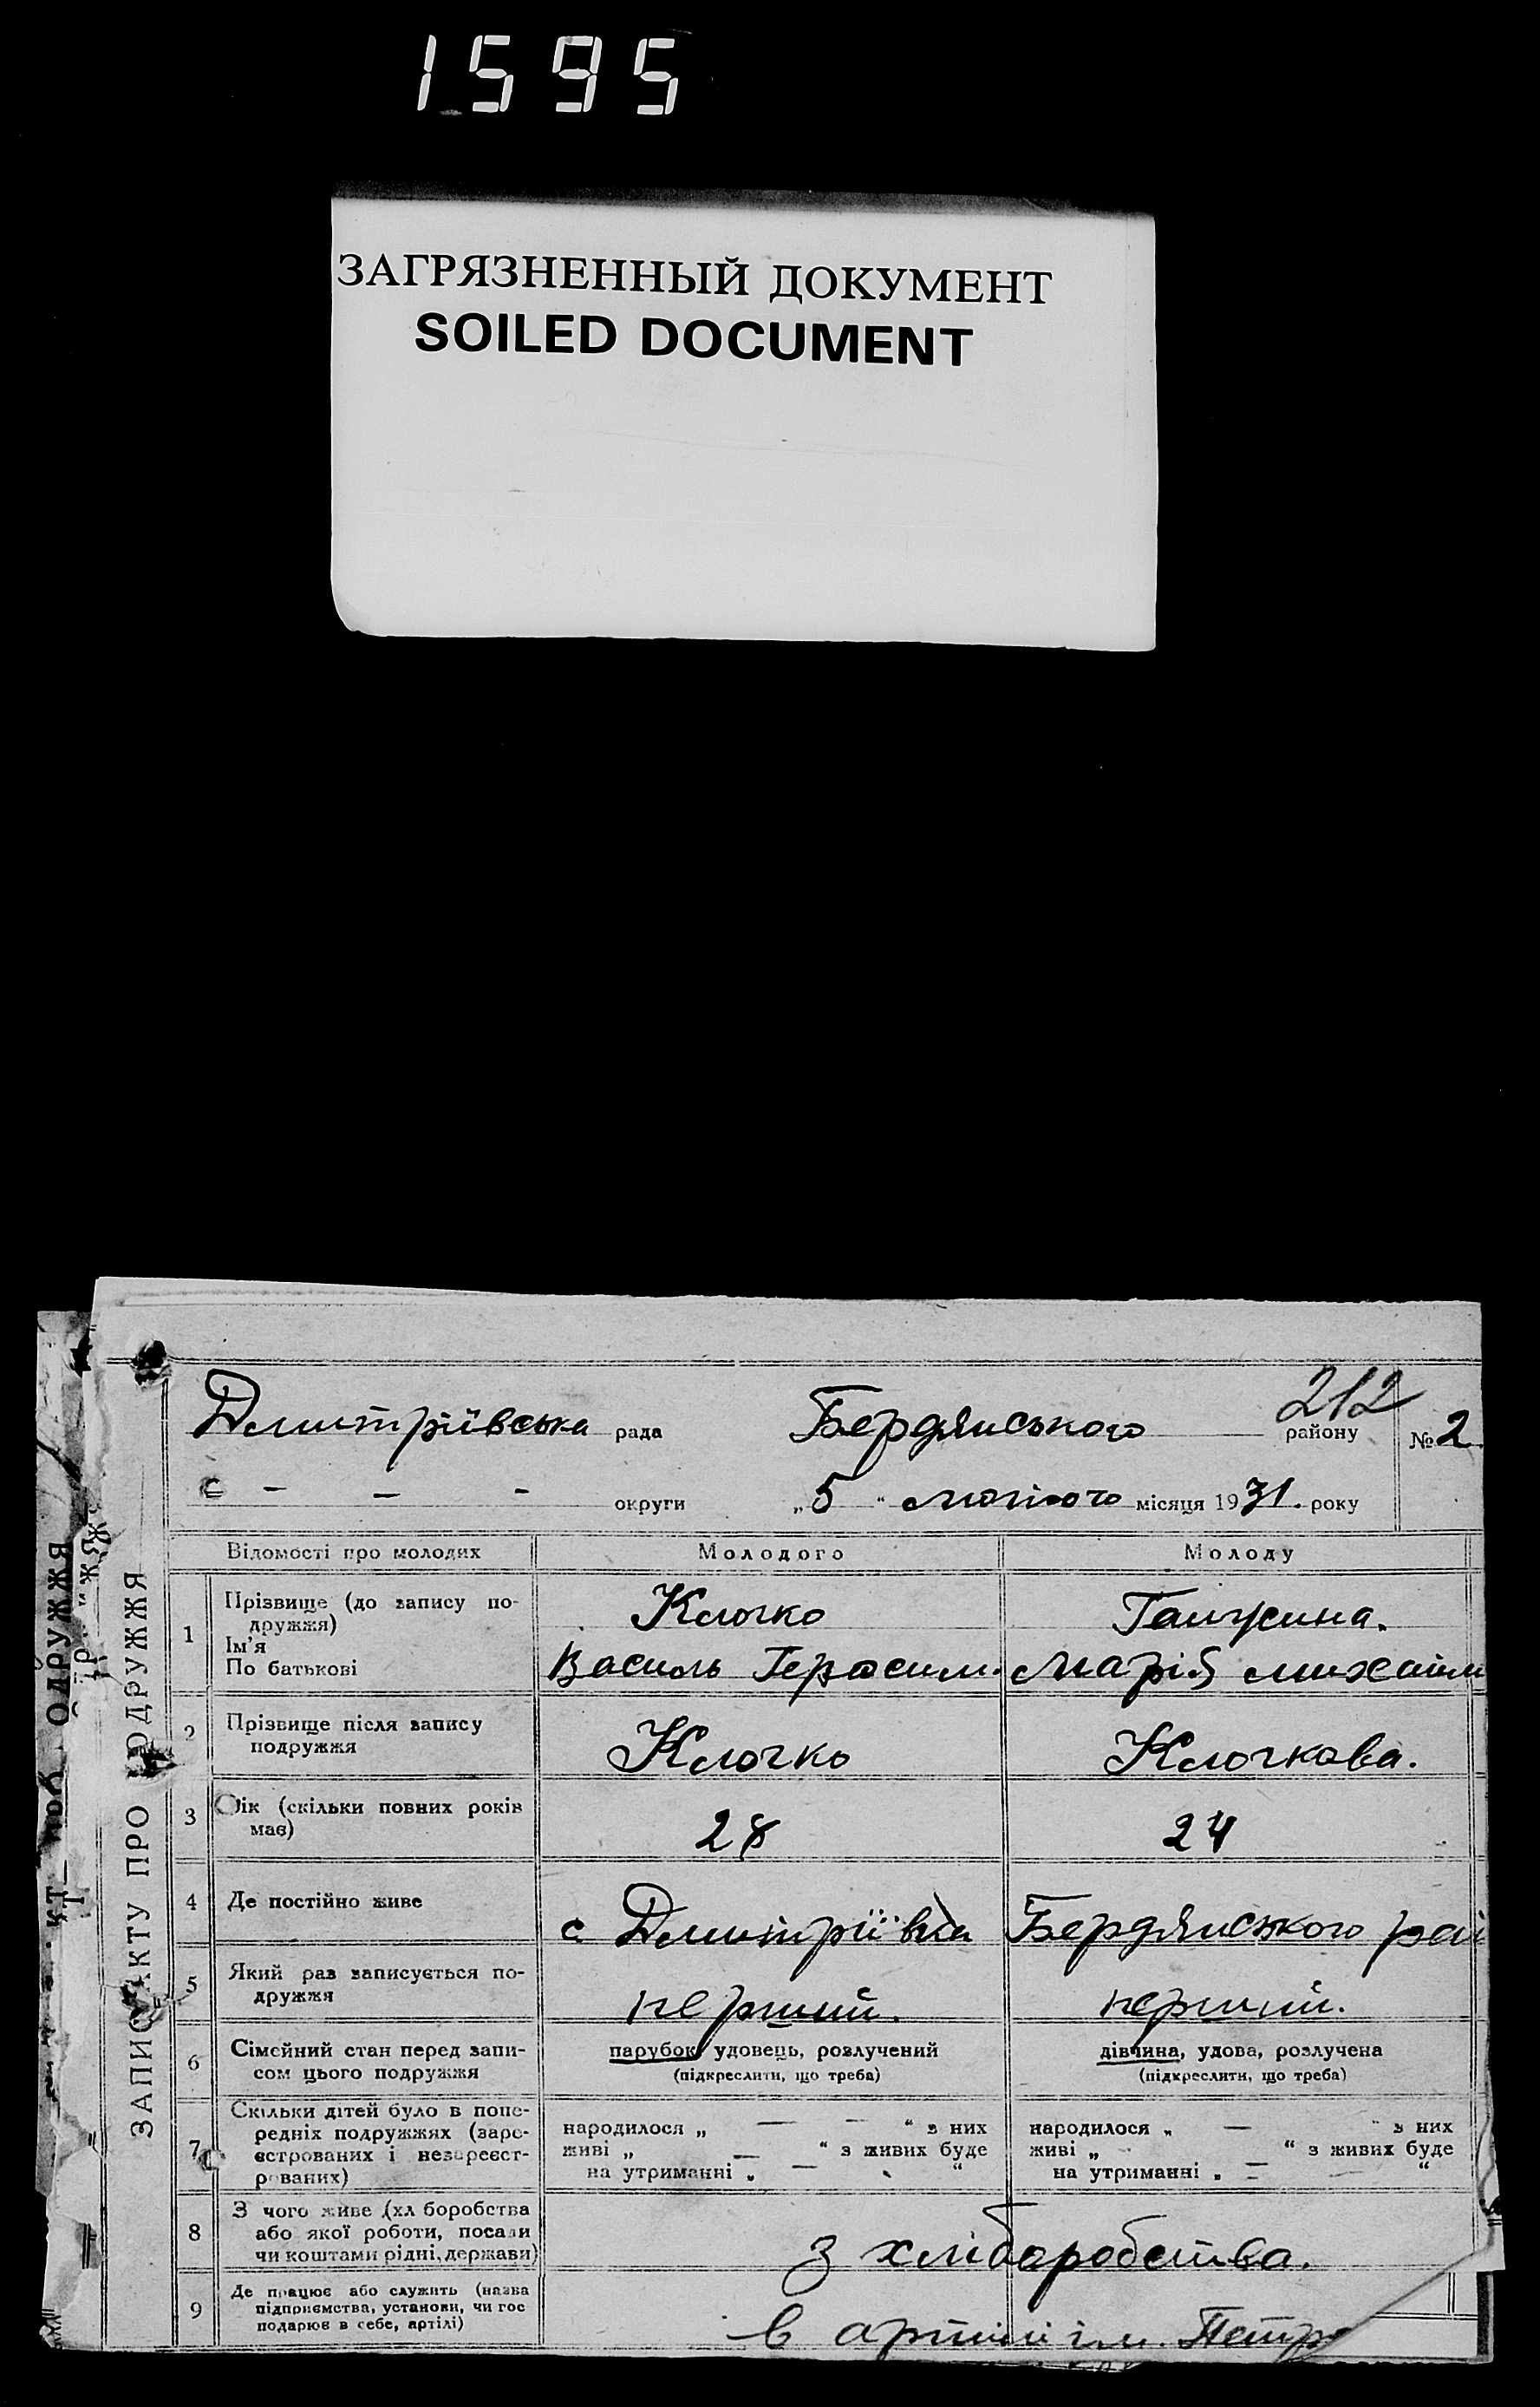 1595
ЗАГРЯЗНЕННЫЙ ДОКУМЕНТ
SOILED DOCUMENT
212
Дмитріївська рада Бердянського району № 2
с - - - округи „5“ лютого місяця 1931. року
ЗАПИС АКТУ ПРО ОДРУЖЖЯ
Відомості про молодих Молодого Молоду
1 Прізвище (до запису по-
дружжя) Клочко
Ім'я
По батькові Василь Герасим. Марія михайл
2 Прізвище після запису
подружжя Клочко Клочкова.
3 Вік (скільки повних років
має) 28 24
4 Де постійно живе с Дмитріївка Бердянського рай
5 Який раз записується по-
дружжя перший. перший.
6 Сімейний стан перед запи-
сом цього подружжя парубок, удовець, розлучений дівчина, удова, розлучена
(підкреслити, що треба) (підкреслити, що треба)
7 Скільки дітей було в попе-
редніх подружжях (заре-
єстрованих і незареєст-
рованих)
народилося „ — — “ з них народилося „ — “ з них
живі „ — “ з живих буде живі „ - “ з живих буде
на утриманні „ — “ на утриманні „ — “
8 З чого живе (хліборобства
або якої роботи, посади
чи коштами рідні, держави) З хліборобства.
9 Де працює або служить (назва
підприємства, установи, чи гос
подарює в себе, артілі) в артілі ім. Петр